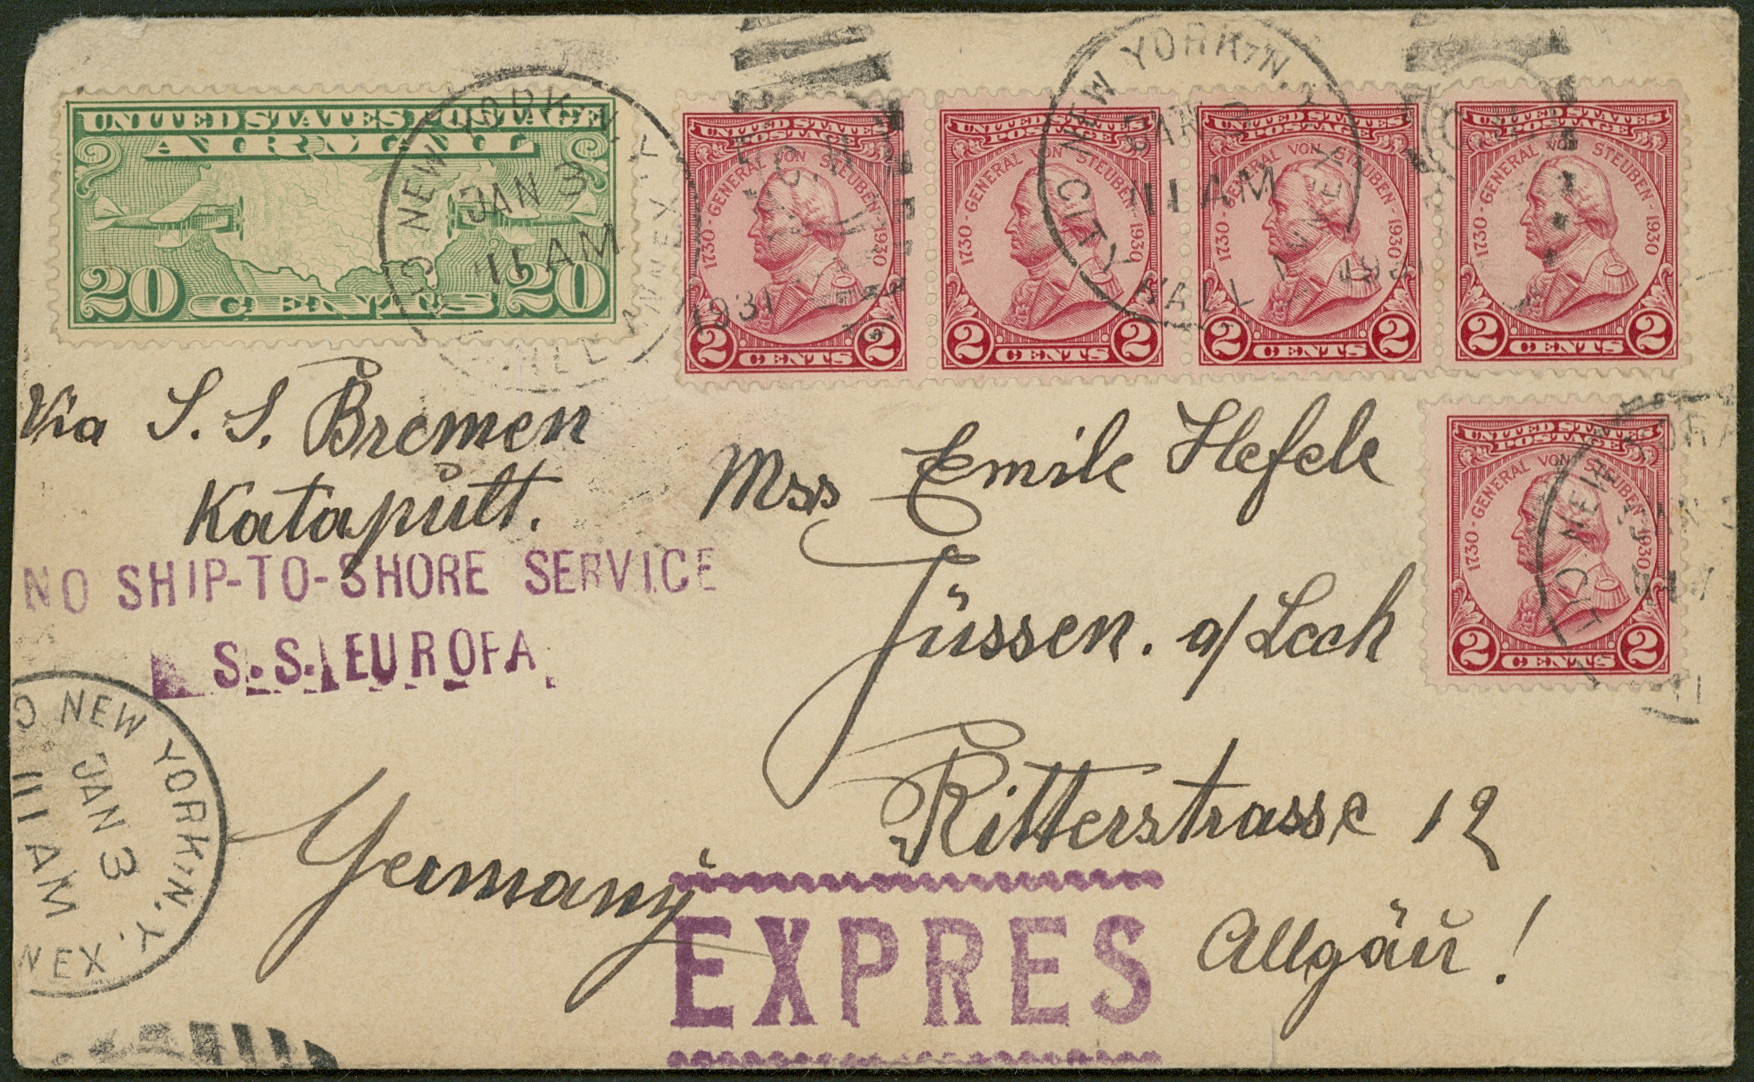 UNITED STATES POSTAGE
AIR MAIL
20 CENTS 20
NEW YORK, N.Y.
JAN 3
11 AM
1931
CITY HALL ANNEX
UNITED STATES
POSTAGE
1730 - GENERAL VON STEUBEN - 1930
2 CENTS 2
UNITED STATES
POSTAGE
1730 - GENERAL VON STEUBEN - 1930
2 CENTS 2
NEW YORK, N.Y.
JAN 3
11 AM
1931
CITY HALL ANNEX
UNITED STATES
POSTAGE
1730 - GENERAL VON STEUBEN - 1930
2 CENTS 2
UNITED STATES
POSTAGE
1730 - GENERAL VON STEUBEN - 1930
2 CENTS 2
UNITED STATES
POSTAGE
1730 - GENERAL VON STEUBEN - 1930
2 CENTS 2
Via S. S. Bremen
Katapult.
NO SHIP-TO-SHORE SERVICE
S.S. EUROPA
Mss Emile Hefele
Füssen. a/Lech
Ritterstrasse 12
Allgäu!
Germany
NEW YORK, N.Y.
JAN 3
11 AM
NEX
EXPRES